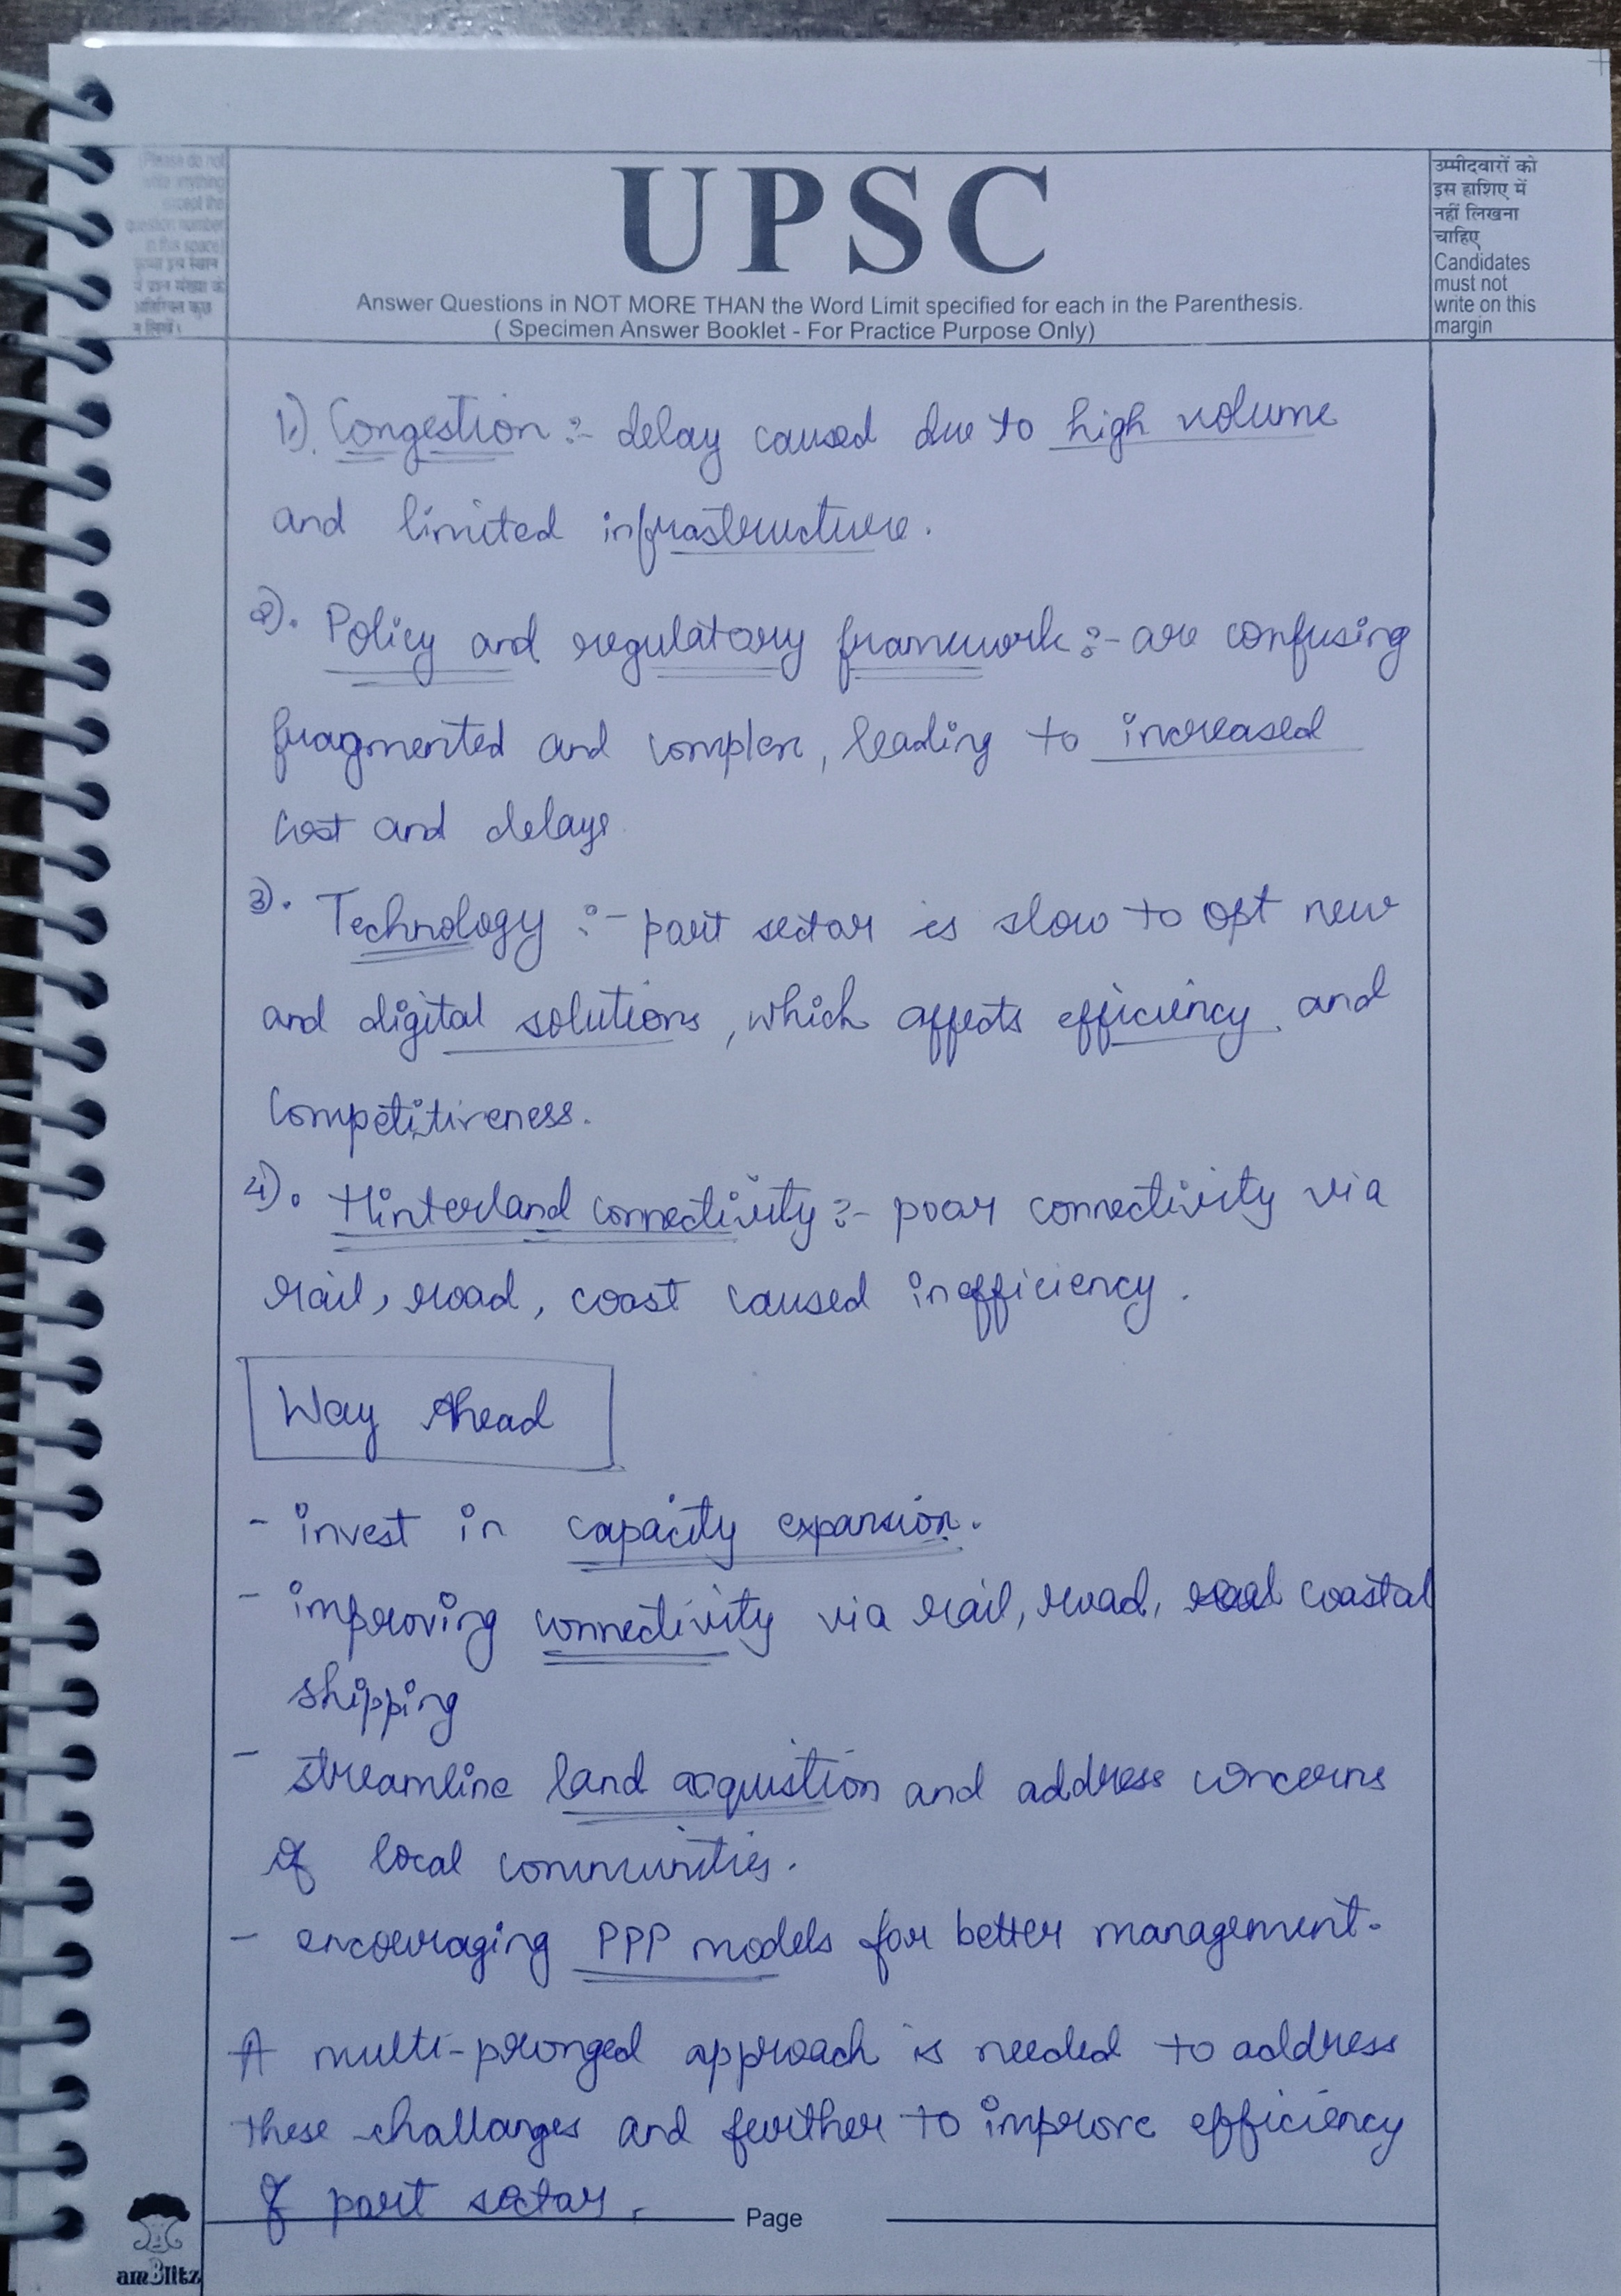 UPSC
Answer Questions in NOT MORE THAN the Word Limit specified for each in the Parenthesis.
( Specimen Answer Booklet - For Practice Purpose Only)
(Please do not
write anything
except the
question number
in this space)
उम्मीदवारों को
इस हाशिए में
नहीं लिखना
चाहिए
Candidates
must not
write on this
margin
1). Congestion :- delay caused due to high volume
and limited infrastructure.
2). Policy and regulatory framework :- are confusing
fragmented and complex, leading to increased
cost and delays
3). Technology :- port sector is slow to opt new
and digital solutions, which affects efficiency and
competitiveness.
4). Hinterland connectivity :- poor connectivity via
rail, road, coast caused inefficiency.
Way Ahead
- invest in capacity expansion.
- improving connectivity via rail, road, coastal
shipping
- streamline land acquistion and address concerns
of local communities.
- encouraging PPP models for better management.
A multi-pronged approach is needed to address
these challanges and further to improve efficiency
of port sector.
Page
amBlitz